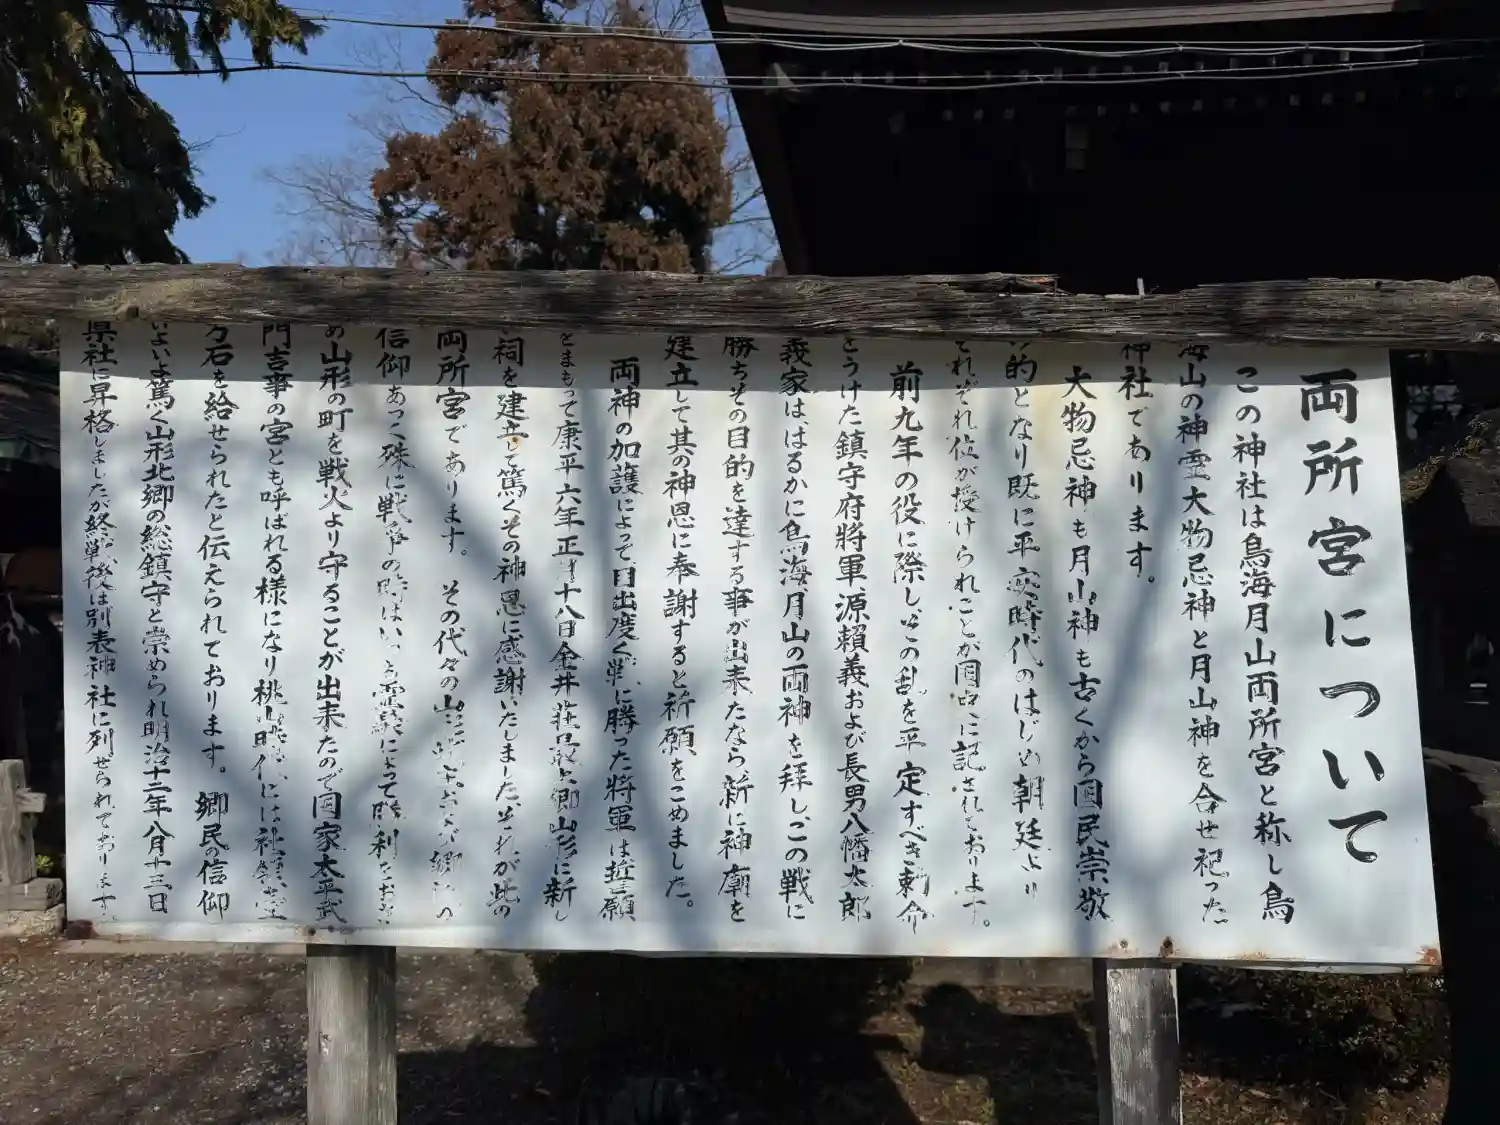 両所宮について
この神社は鳥海月山両所宮と称し鳥
海山の神霊大物忌神と月山神を合せ祀った
神社であります。
大物忌神も月山神も古くから国民崇敬
的となり既に平安時代のはじめ朝廷より
それぞれ位が授けられことが国史に記されております。
前九年の役に際しこの乱を平定すべき勅命
をうけた鎮守府将軍源頼義および長男八幡太郎
義家ははるかに鳥海月山の両神を拝しこの戦に
勝ちその目的を達する事が出来たなら新に神廟を
建立して其の神恩に奉謝すると祈願をこめました。
両神の加護によって目出度く戦に勝った将軍は誓願
をまもって康平六年正月十八日金井荘 郷山形に新し
い祠を建立して篤くその神恩に感謝いたしましたこれが此の
両所宮であります。 その代々の山形 郷 の
信仰あつく殊に戦争の時はいつも霊験によって勝利をお
め山形の町を戦火より守ることが出来たので国家太平武
門吉事の宮とも呼ばれる様になり桃山時代には社領
万石を給せられたと伝えられております。 郷民の信仰
いよいよ篤く山形北郷の総鎮守と崇められ明治十二年八月十三日
県社に昇格しましたが終戦後は別表神社に列せられております。